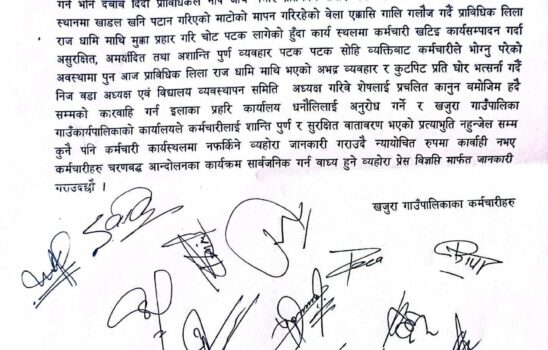 गर्न भनि दबाव दिदा प्राविधिकले नाप जाँच
स्थानमा खाडल खनि पटान गरिएको माटोको मापन गरिरहेको वेला एक्कासि गालि गलौज गर्दै प्राविधिक लिला
राज धामि माथि मुक्का प्रहार गरि चोट पटक लागेको हुँदा कार्य स्थलमा कर्मचारी खटिइ कार्यसम्पादन गर्दा
असुरक्षित, अमर्यादित तथा अशान्ति पुर्ण व्यवहार पटक पटक सोहि व्यक्तिबाट कर्मचारीले भोग्नु परेको
अवस्थामा पुन आज प्राविधिक लिला राज धामि माथि भएको अभद्र व्यवहार र कुटपिट प्रति घोर भत्सर्ना गर्दै
निज वडा अध्यक्ष एवं विद्यालय व्यवस्थापन समिति अध्यक्ष गरिवे शेषलाई प्रचलित कानुन वमोजिम हदै
सम्मको कारवाहि गर्न इलाका प्रहरि कार्यालय धनौलीलाई अनुरोध गर्ने र खजुरा गाउँपालिका
गाउँकार्यपालिकाको कार्यालयले कर्मचारीलाई शान्ति पुर्ण र सुरक्षित वातावरण भएको प्रत्याभुति नहुन्जेल सम्म
कुनै पनि कर्मचारी कार्यस्थलमा नफर्किने व्यहोरा जानकारी गराउदै न्यायोचित रुपमा कार्वाही नभए
कर्मचारीहरु चरणबद्ध आन्दोलनका कार्यक्रम सार्वजनिक गर्न वाध्य हुने व्यहोरा प्रेस विज्ञप्ति मार्फत जानकारी
गराउदछौं ।
खजुरा गाउँपालिकाका कर्मचारीहरु